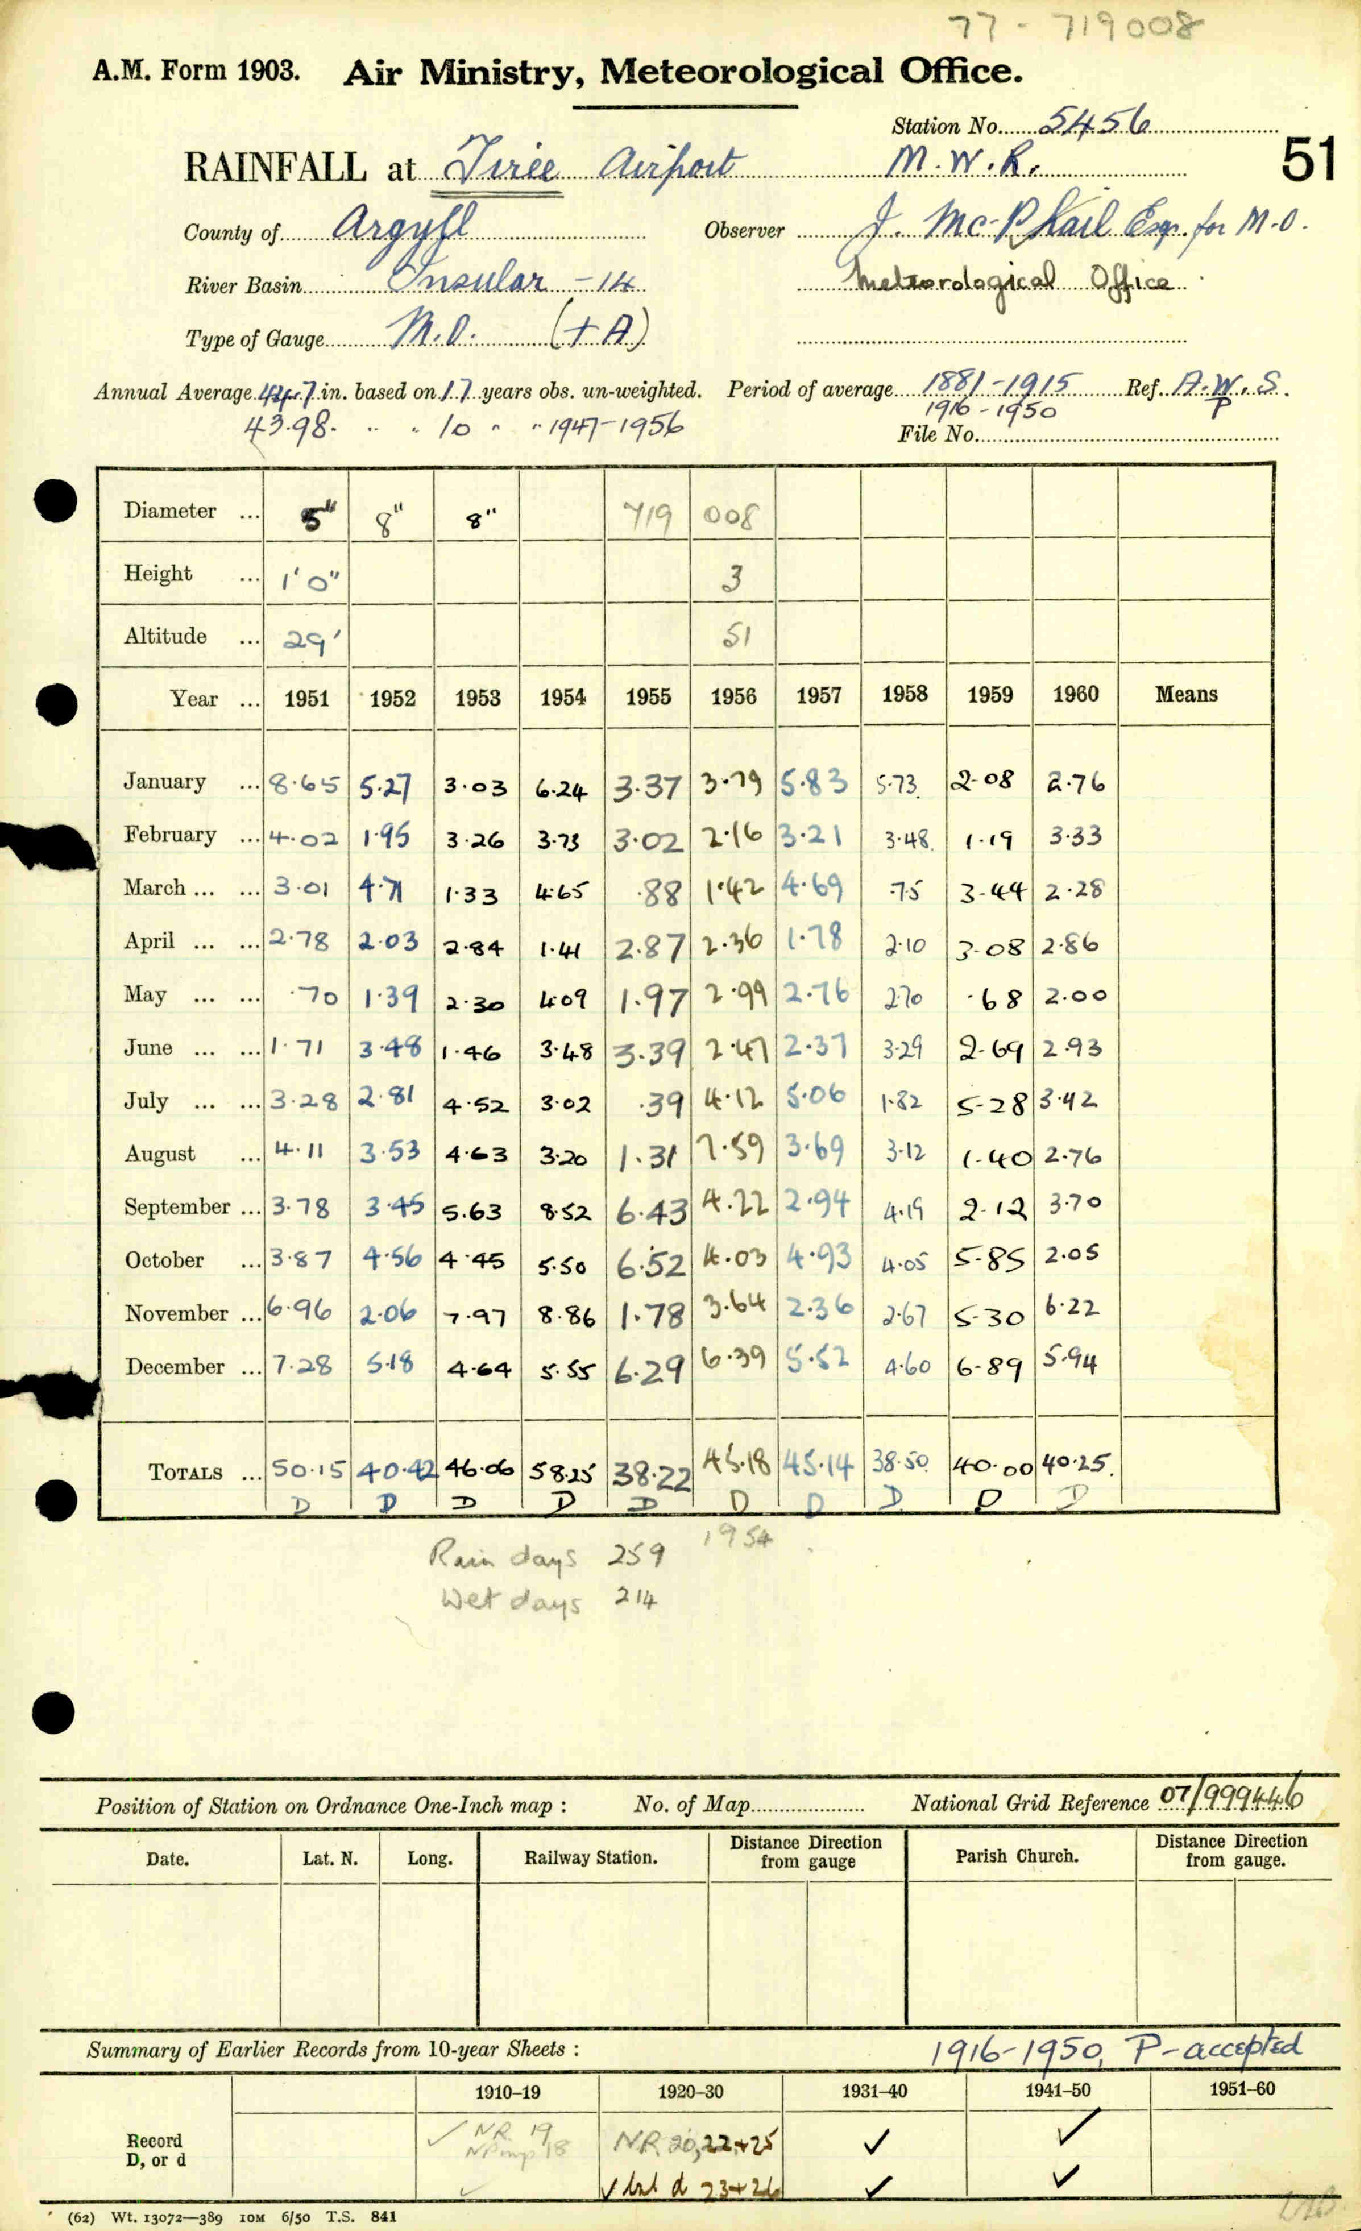 77 - 719008
A.M. Form 1903. Air Ministry, Meteorological Office.
Station No. 5456
RAINFALL at Tiree Airport M.W.R. 51
County of Argyll Observer J. McPhail Esq. for M.O.
River Basin Insular - 14 Meteorological Office
Type of Gauge M.O. (+A)
Annual Average 44.7 in. based on 17 years obs. un-weighted. Period of average 1881-1915 Ref. A.W.S.
1916-1950 P
43.98. " " 10 " " 1947-1956 File No.
Diameter ... 5" 8" 8" 719 008
Height ... 1'0" 3
Altitude ... 29' 51
Year ... 1951 1952 1953 1954 1955 1956 1957 1958 1959 1960 Means
January ... 8.65 5.27 3.03 6.24 3.37 3.79 5.83 5.73 2.08 2.76
February ... 4.02 1.95 3.26 3.73 3.02 2.16 3.21 3.48 1.19 3.33
March ... ... 3.01 4.71 1.33 4.65 .88 1.42 4.69 .75 3.44 2.28
April ... ... 2.78 2.03 2.84 1.41 2.87 2.36 1.78 2.10 3.08 2.86
May ... ... .70 1.39 2.30 4.09 1.97 2.99 2.76 2.70 .68 2.00
June ... ... 1.71 3.48 1.46 3.48 3.39 2.47 2.37 3.29 2.69 2.93
July ... ... 3.28 2.81 4.52 3.02 .39 4.12 5.06 1.82 5.28 3.42
August ... 4.11 3.53 4.63 3.20 1.31 7.59 3.69 3.12 1.40 2.76
September ... 3.78 3.45 5.63 8.52 6.43 4.22 2.94 4.19 2.12 3.70
October ... 3.87 4.56 4.45 5.50 6.52 4.03 4.93 4.05 5.85 2.05
November ... 6.96 2.06 7.97 8.86 1.78 3.64 2.36 2.67 5.30 6.22
December ... 7.28 5.18 4.64 5.55 6.29 6.39 5.52 4.60 6.89 5.94
TOTALS ... 50.15 40.42 46.06 58.25 38.22 45.18 45.14 38.50 40.00 40.25
D D D D D D D D D D
Rain days 259 1954
Wet days 214
Position of Station on Ordnance One-Inch map : No. of Map National Grid Reference 07/999446
Date. Lat. N. Long. Railway Station. Distance Direction from gauge Parish Church. Distance Direction from gauge.
Summary of Earlier Records from 10-year Sheets : 1916-1950, P-accepted
1910–19 1920–30 1931–40 1941–50 1951–60
Record ✓ NR 19 NR 20, 22+25 ✓ ✓
D, or d 18
✓ ✓ but d 23+26 ✓ ✓
(62) Wt. 13072—389 10M 6/50 T.S. 841